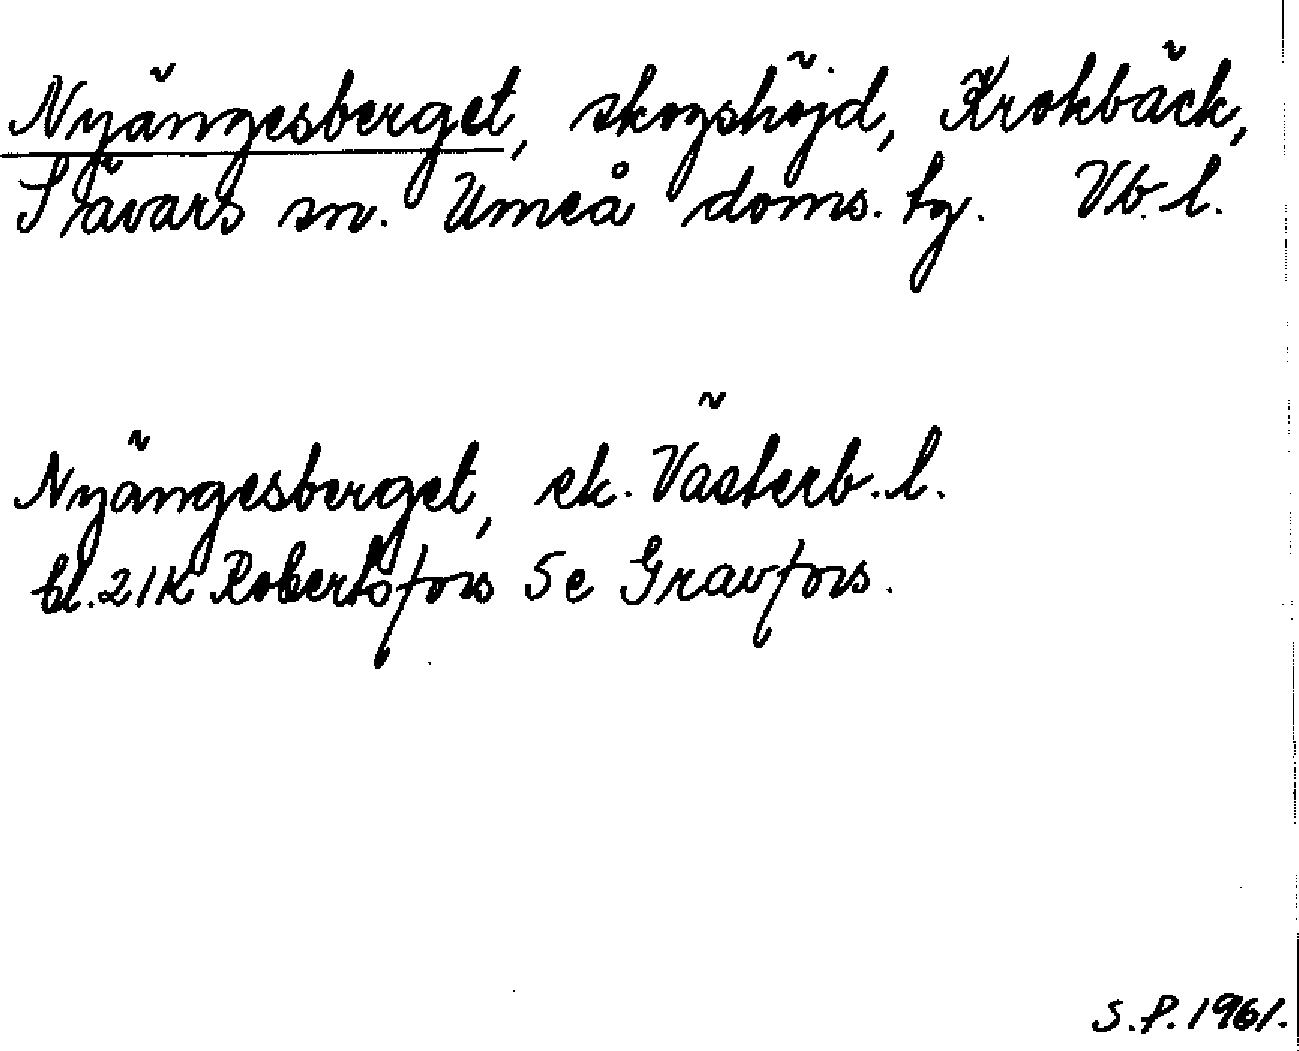 Nyängesberget, skogshöjd, Krokbäck,
Sävars sn. Umeå doms. tg. Vb. l.
Nyängesberget, ek. Västerb. l.
bl. 21K Robertsfors 5e Gravfors.
S.P. 1961.